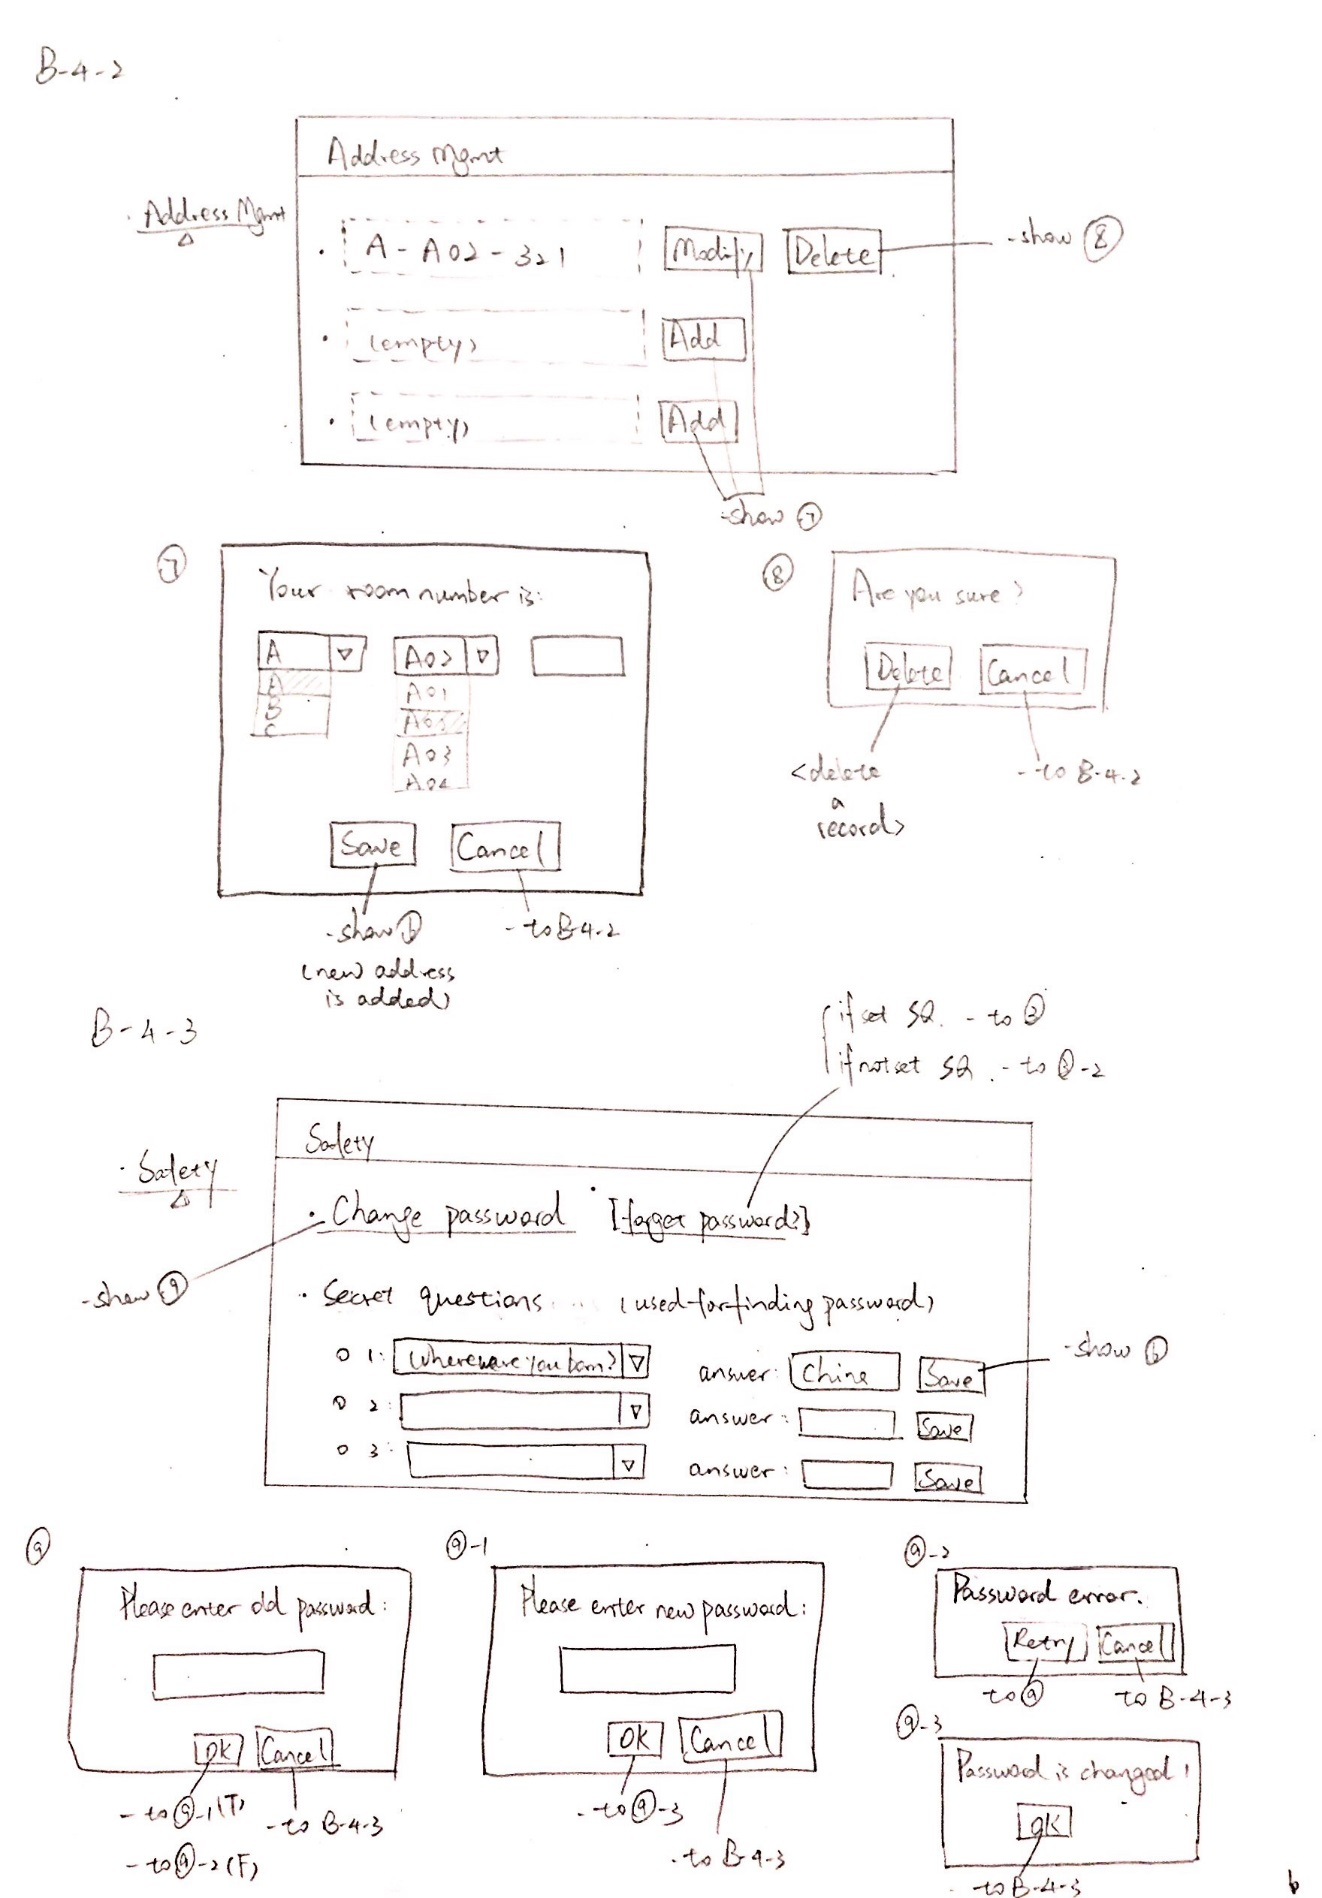 B-4-2
Address Mgmt
· Address Mgmt
· A - A02 - 321 Modify Delete - show ⑧
· (empty) Add
· (empty) Add
- show ⑦
⑦ Your room number is:
A A02
A A01
B A02
C A03
A04
Save Cancel
- show ⑥ - to B-4-2
(new address
is added)
⑧ Are you sure?
Delete Cancel
<delete - to B-4-2
a
record>
B-4-3
if set SQ. - to
if not set SQ. - to -2
Safety
· Safety
· Change password [forget password?]
- show ⑨
· Secret questions ... (used for finding password)
1: Where were you born? answer: China Save - show ⑥
2: answer: Save
3: answer: Save
⑨ Please enter old password:
OK Cancel
- to ⑨-1 (T) - to B-4-3
- to ⑨-2 (F)
⑨-1 Please enter new password:
OK Cancel
- to ⑨-3
- to B-4-3
⑨-2
Password error.
Retry Cancel
to ⑨ to B-4-3
⑨-3
Password is changed!
OK
- to B-4-3
6